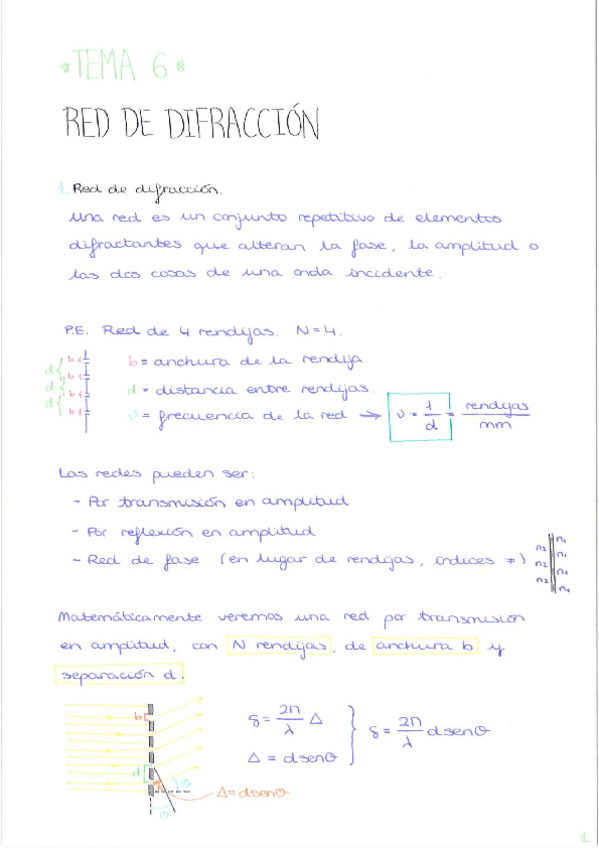 TEMA 6
RED DE DIFRACCIÓN
1. Red de difracción.
Una red es un conjunto repetitivo de elementos
difractantes que alteran la fase, la amplitud o
las dos cosas de una onda incidente.
P.E. Red de 4 rendijas. N=4.
b = anchura de la rendija
d = distancia entre rendijas.
ν = frecuencia de la red → ν = 1/d = rendijas/mm
b
d
b
d
b
d
b
Las redes pueden ser:
- Por transmisión en amplitud
- Por reflexión en amplitud
- Red de fase (en lugar de rendijas, índices ≠)
n2 n1
n2 n1
n2 n1
Matemáticamente veremos una red por transmisión
en amplitud, con N rendijas, de anchura b y
separación d.
b
d
θ
θ
Δ = d senθ
δ = 2π/λ Δ
Δ = d senθ
δ = 2π/λ d senθ
1.